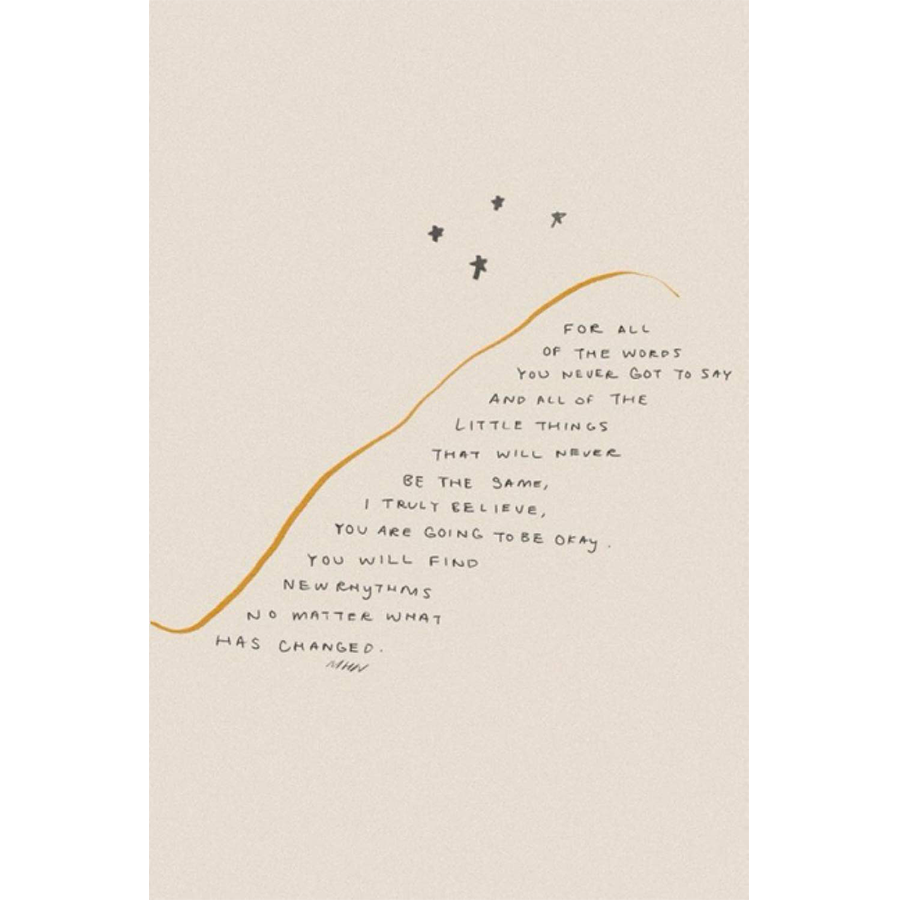 FOR ALL
OF THE WORDS
YOU NEVER GOT TO SAY
AND ALL OF THE
LITTLE THINGS
THAT WILL NEVER
BE THE SAME,
I TRULY BELIEVE,
YOU ARE GOING TO BE OKAY.
YOU WILL FIND
NEW RHYTHMS
NO MATTER WHAT
HAS CHANGED.
MHN